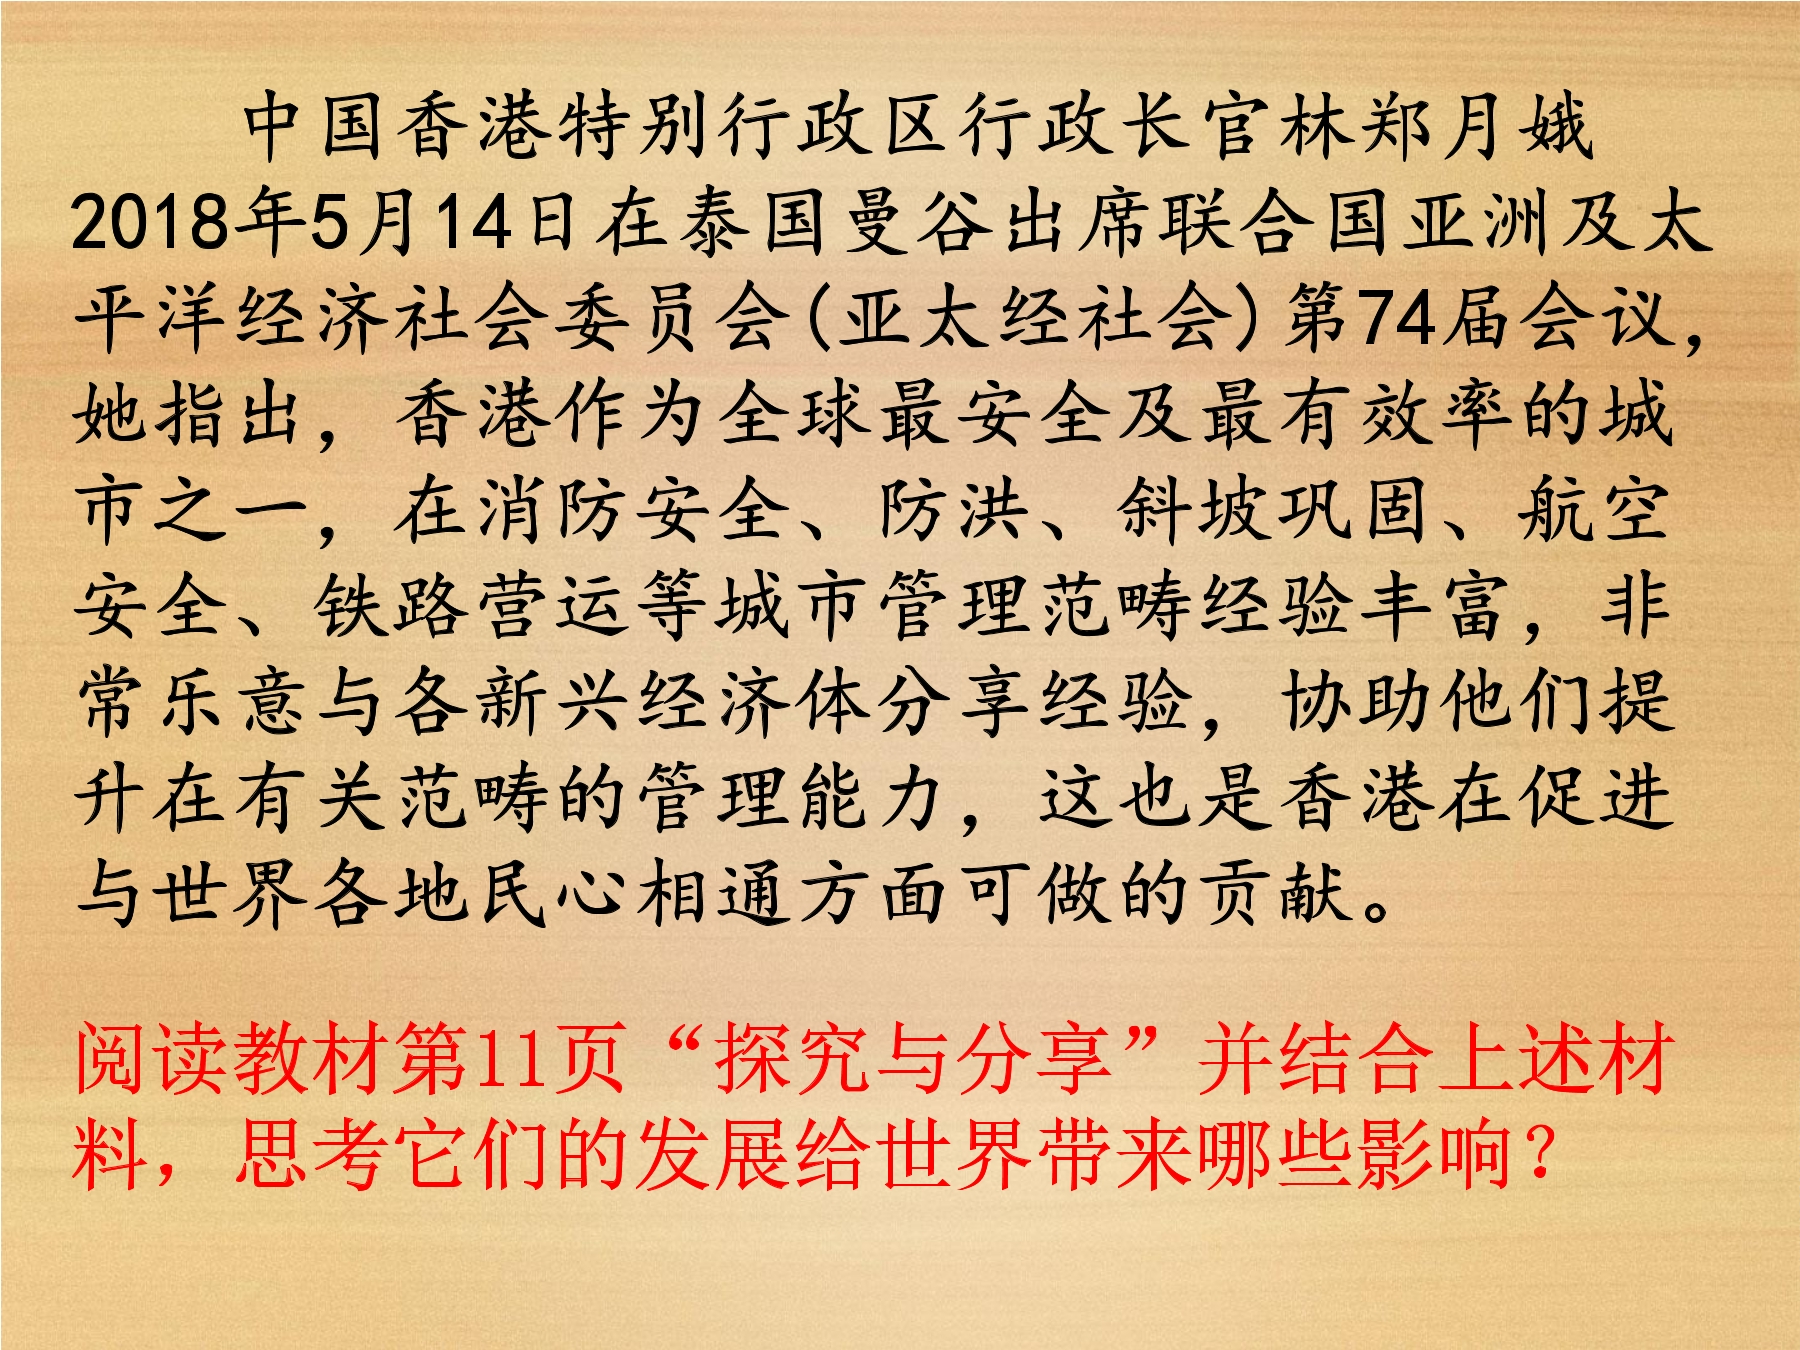 中国香港特别行政区行政长官林郑月娥
2018年5月14日在泰国曼谷出席联合国亚洲及太
平洋经济社会委员会(亚太经社会)第74届会议，
她指出，香港作为全球最安全及最有效率的城
市之一，在消防安全、防洪、斜坡巩固、航空
安全、铁路营运等城市管理范畴经验丰富，非
常乐意与各新兴经济体分享经验，协助他们提
升在有关范畴的管理能力，这也是香港在促进
与世界各地民心相通方面可做的贡献。
阅读教材第11页“探究与分享”并结合上述材
料，思考它们的发展给世界带来哪些影响？